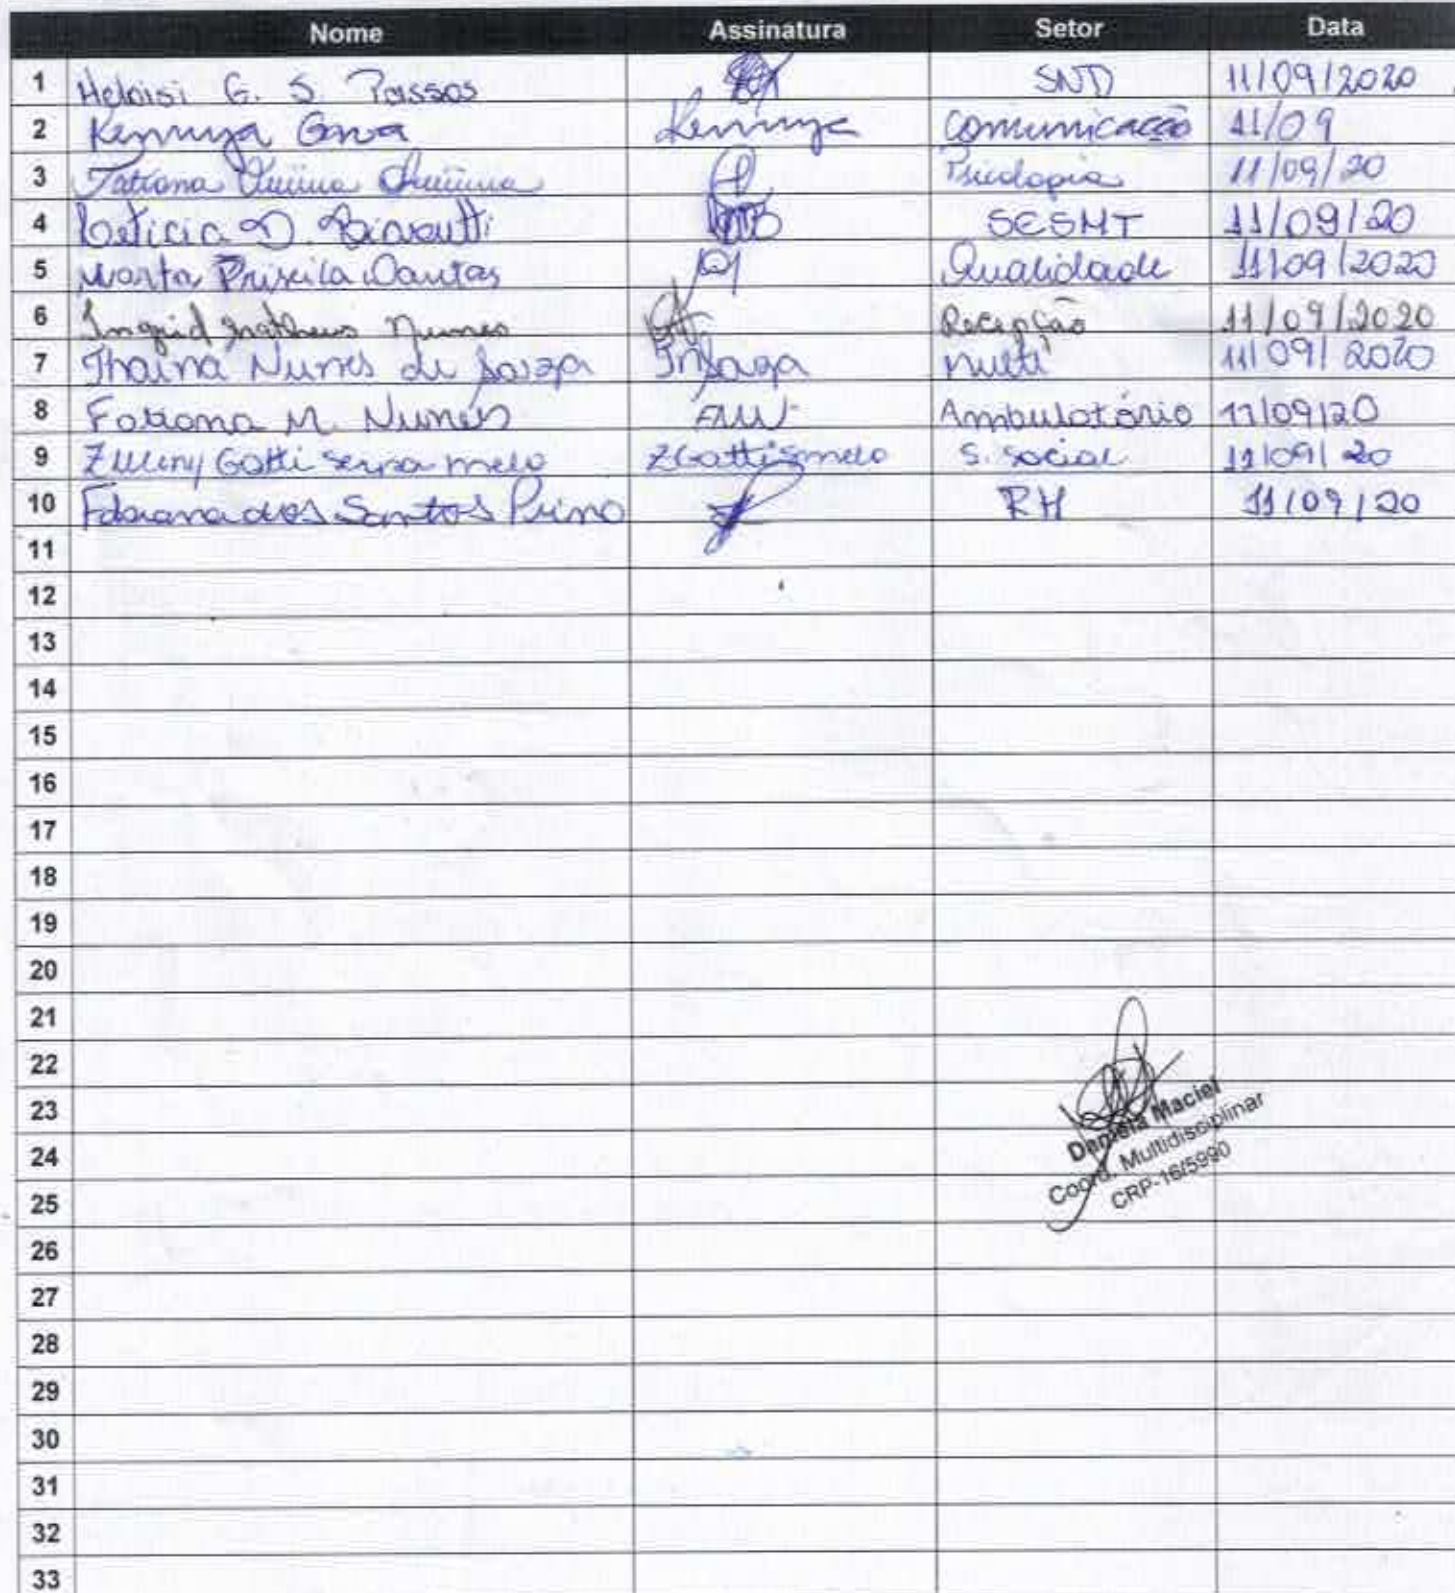 Nome Assinatura Setor Data
1 Heloisi G. S. Passos SND 11/09/2020
2 Kennya Gava Kennya Comunicação 11/09
3 Tatiana Psicologia 11/09/20
4 Leticia D. SESMT 11/09/20
5 Marta Priscila Dantas Qualidade 11/09/2020
6 Ingrid Matheus Nunes Recepção 11/09/2020
7 Thaina Nunes de Souza Multi 11/09/2020
8 Fabiana M. Nunes Ambulatório 11/09/20
9 Gatti Serpa melo ZGattismelo S. Social 11/09/20
10 Fabiana dos Santos Primo RH 11/09/20
11
12
13
14
15
16
17
18
19
20
21
22
23
24
25
26
27
28
29
30
31
32
33
Daniela Maciel
Coord. Multidisciplinar
CRP-16/5990